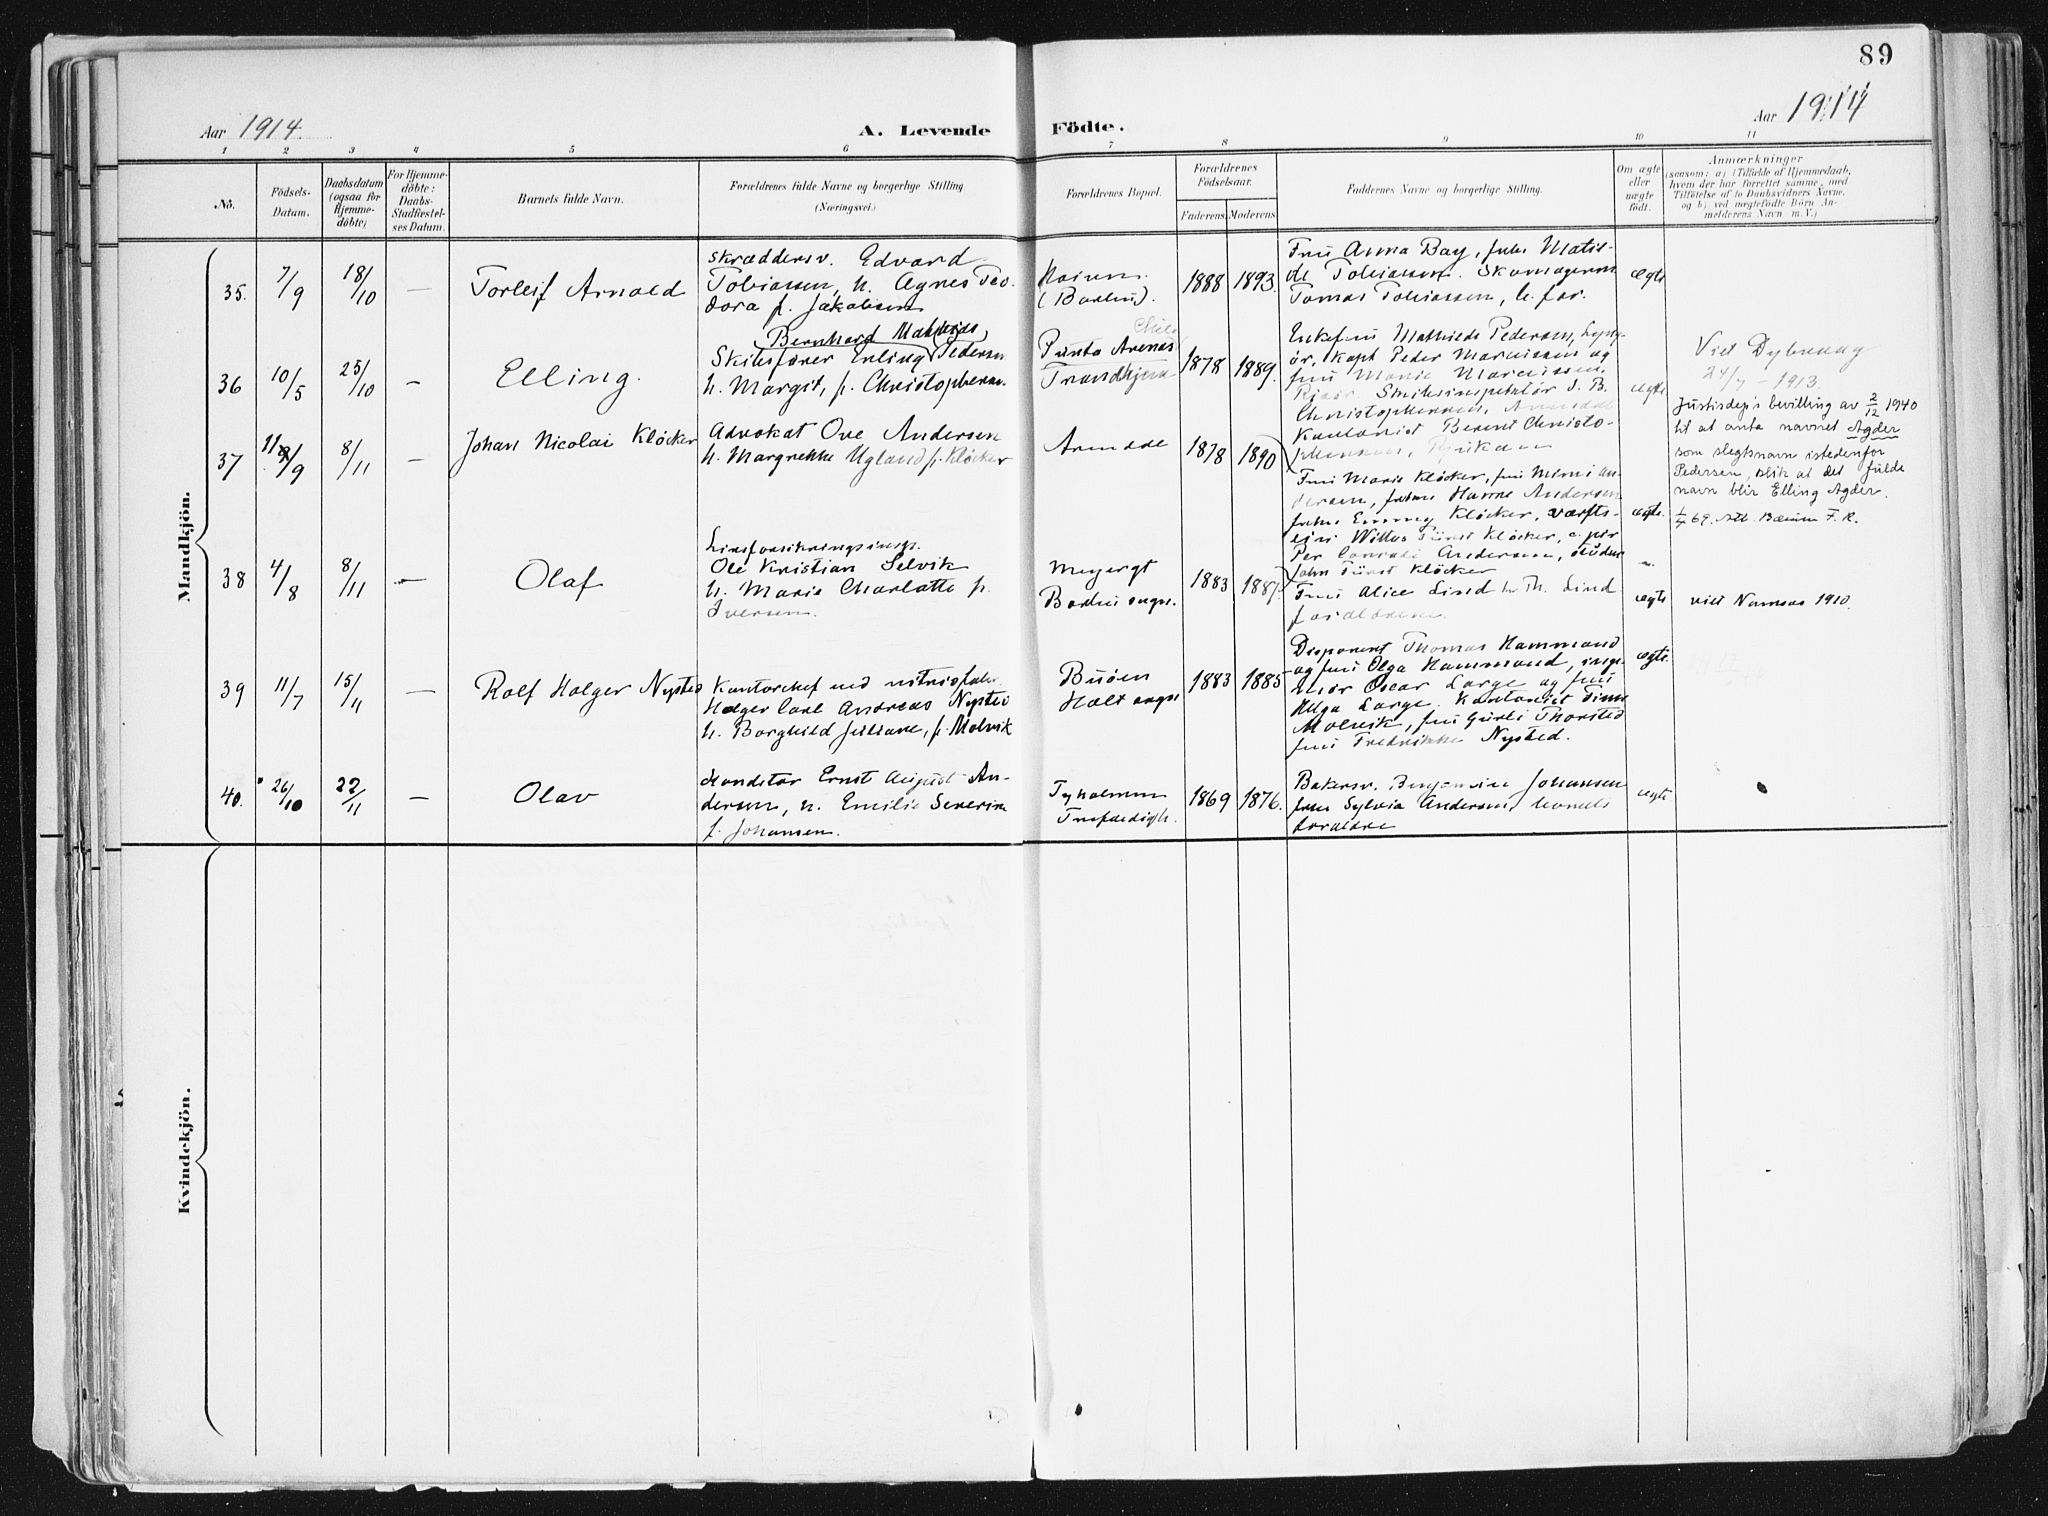 89
Aar 1914.
A. Levende Födte.
Aar 1914
1 2 3 4 5 6 7 8 9 10 11
No.
Födsels-
Datum.
Daabsdatum
(ogsaa for
Hjemme-
döbte)
For Hjemme-
döbte:
Daabs-
Stadfæstel-
ses Datum.
Barnets fulde Navn.
Forældrenes fulde Navne og borgerlige Stilling
(Næringsvei.)
Forældrenes Bopæl.
Forældrenes
Födselsaar.
Faderens. Moderens.
Faddernes Navne og borgerlige Stilling.
Om ægte
eller
uægte
födt.
Anmærkninger
(saasom: a) i Tilfælde af Hjemmedaab,
hvem der har forrettet samme, med
Tilföielse af to Daabsvidners Navne.
og b) ved uægtefödte Börn An-
melderens Navn m. V.)
Mandkjön.
35. 7/9 18/10 — Torleif Arnold
Skræddersv. Edvard
Tobiassen, h. Agnes Teo-
dora f. Jakobsen
(Barbu).
1888 1893.
Fru Anna Bay, frk. Matil-
de Tobiassen. Skomagersv.
Tomas Tobiassen, b. far.
ægte
36 10/5 25/10 — Elling.
Bernhard Mathias
Skibsfører Erling Pedersen
h. Margit, f. Christophersen.
Chile
Punta Arenas
Trondhjem
1878 1889.
Enkefru Mathilde Pedersen, Lyng-
ør, kapt. Peder Marcussen og
fru Marie Marcussen,
Risør. Skibsinspektør S. B.
Christophersen, Arendal
Kontorist Berent Christo-
phersen, Rjukan
ægte
Viet Dybvaag
24/7 - 1913.
Justisdep's bevilling av 2/12 1940
til at anta navnet Agder
som slegtsnavn istedenfor
Pedersen, slik at det fulde
navn blir Elling Agder.
1/4 69. Att. Bærum F. R.
37 11/9 8/11 — Johan Nicolai Kløcker
Advokat Ove Andersen
h. Margrethe Ugland f. Kløcker
Arendal
1878 1890
Fru Marie Kløcker, fru Mimi An-
dersen, frøken Hanne Andersen
frøken Emmy Kløcker, værfts-
eier Willus Fürst Kløcker,
Per Conradi Andersen, student
John Fürst Kløcker
ægte.
38 4/8 8/11 — Olaf
Livsforsikringsinsp.
Ole Kristian Selvik
h. Marie Charlotte f.
Iversen.
Barbu sogn.
1883 1887.
Fru Alice Lind hr Th. Lind
forældrene.
ægte
viet Namsos 1910.
39 11/7 15/11 — Rolf Holger Nysted
Kontorchef ved nitridfabr.
Holger Carl Andreas Nysted
h. Borghild Juliane, f. Molvik
Buøen
Holt sogn
1883 1885
Disponent Thomas Hammond
og fru Olga Hammond, inge-
niør Oscar Large og fru
Helga Large. Kontorist Finn
Molvik, fru Gurli Thorsted
fru Fredrikke Nysted.
ægte.
40. 26/10 22/11 — Olav
Konditor Ernst August An-
dersen, h. Emilie Severine
f. Johansen.
Tyholmen
1869 1876.
Bakersv. Benjamin Johansen
frk. Sylvia Andersen, barnets
forældre
ægte
Kvindekjön.